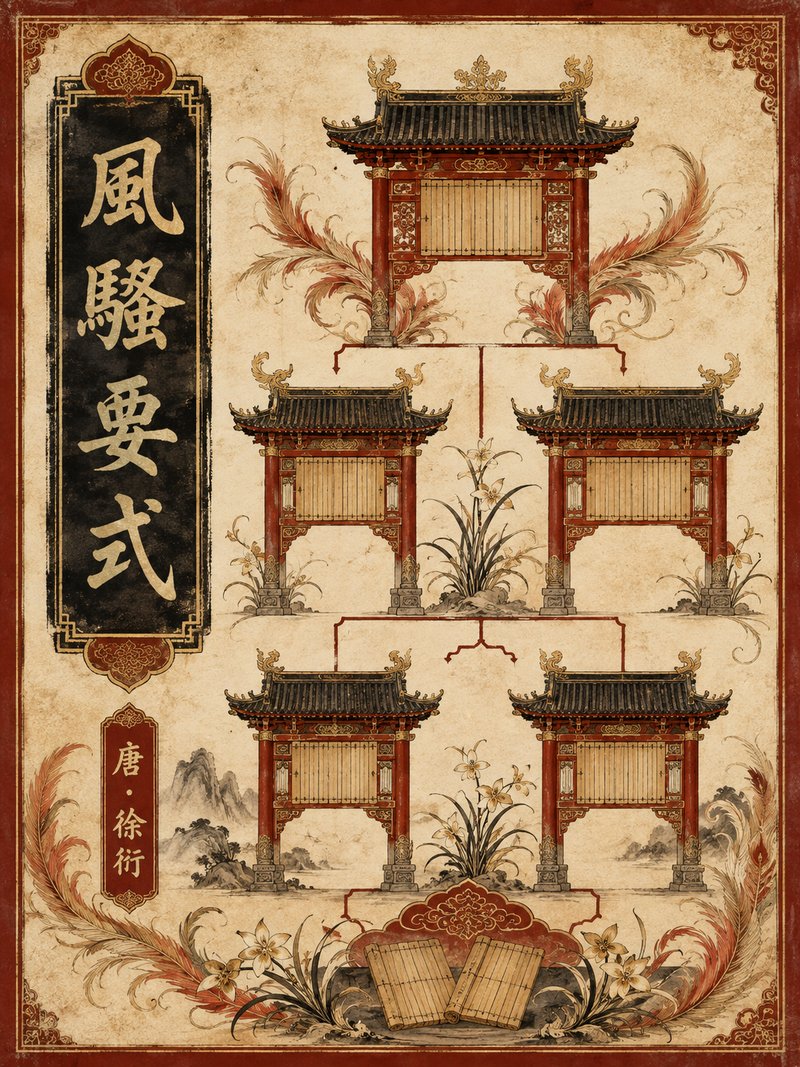 風騷要式
唐·徐衍